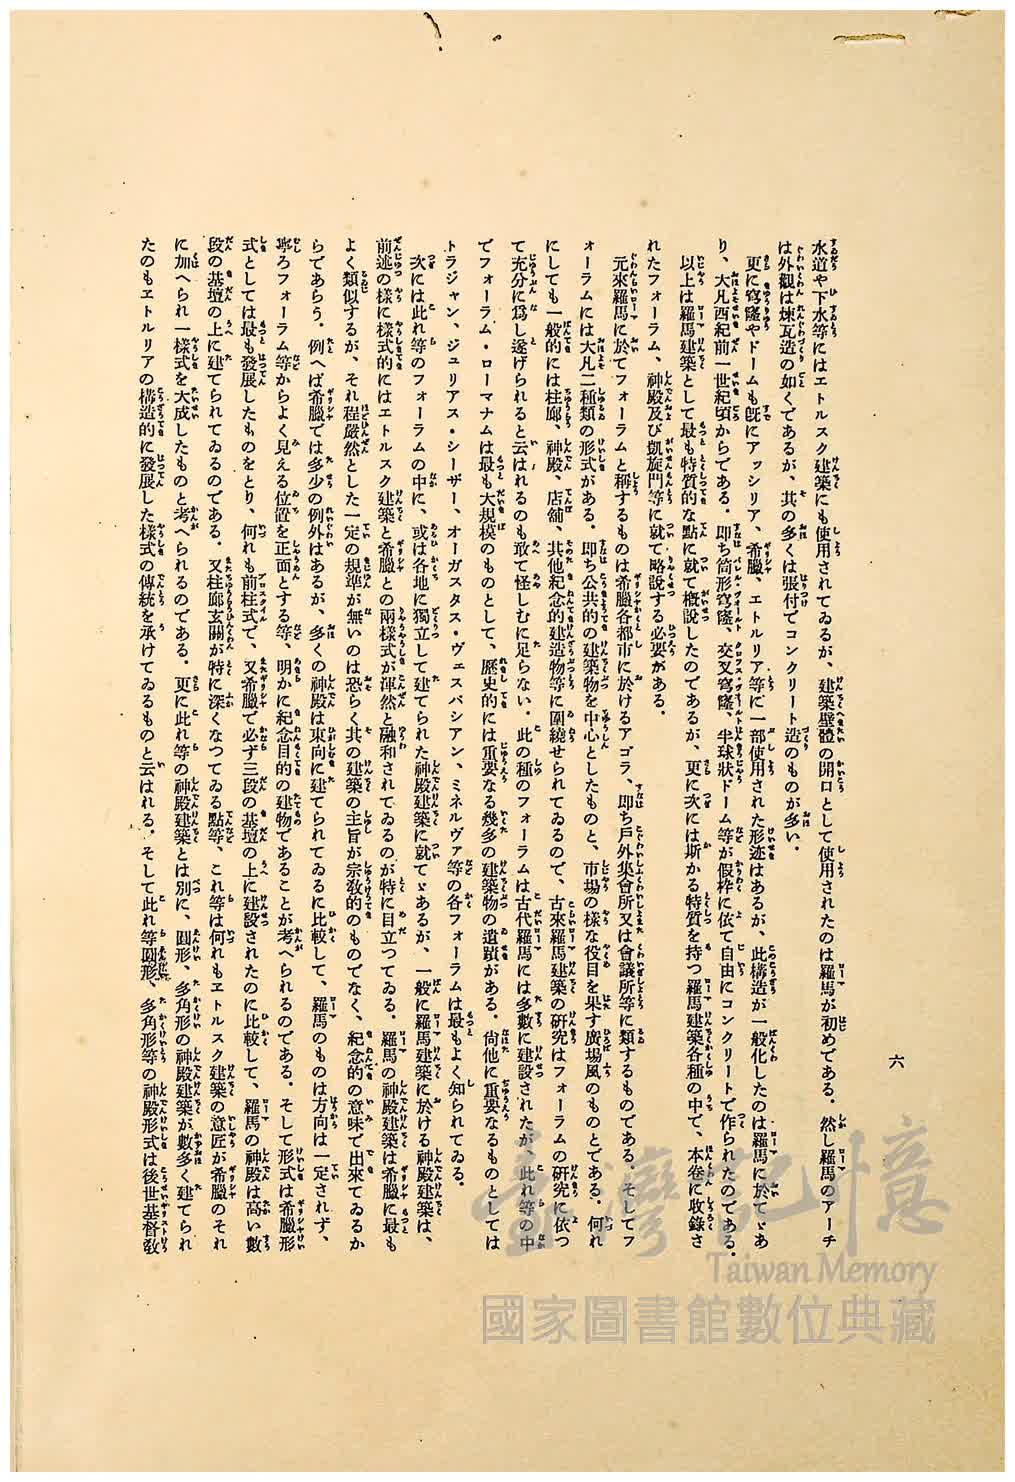 六
水道や下水等にはエトルスク建築にも使用されてゐるが、建築壁體の開口として使用されたのは羅馬が初めである。然し羅馬のアーチ
は外觀は煉瓦造の如くであるが、其の多くは張付でコンクリート造のものが多い。
更に穹窿やドームも既にアッシリア、希臘、エトルリア等に一部使用された形迹はあるが、此構造が一般化したのは羅馬に於てゞあ
り、大凡西紀前一世紀頃からである。即ち筒形穹窿、交叉穹窿、半球狀ドーム等が假枠に依て自由にコンクリートで作られたのである。
以上は羅馬建築として最も特質的な點に就て概説したのであるが、更に次には斯かる特質を持つ羅馬建築各種の中で、本卷に收錄さ
れたフォーラム、神殿及び凱旋門等に就て略説する必要がある。
元來羅馬に於てフォーラムと稱するものは希臘各都市に於けるアゴラ、即ち戶外集會所又は會議所等に類するものである。そしてフ
ォーラムには大凡二種類の形式がある。即ち公共的の建築物を中心としたものと、市場の樣な役目を果す廣場風のものとである。何れ
にしても一般的には柱廊、神殿、店舖、其他紀念的建造物等に圍繞せられてゐるので、古來羅馬建築の研究はフォーラムの研究に依つ
て充分に爲し遂げられると云はれるのも敢て怪しむに足らない。此の種のフォーラムは古代羅馬には多數に建設されたが、此れ等の中
でフォーラム・ローマナムは最も大規模のものとして、歷史的には重要なる幾多の建築物の遺蹟がある。尙他に重要なるものとしては
トラジャン、ジュリアス・シーザー、オーガスタス・ヴェスパシアン、ミネルヴァ等の各フォーラムは最もよく知られてゐる。
次には此れ等のフォーラムの中に、或は各地に獨立して建てられた神殿建築に就てゞあるが、一般に羅馬建築に於ける神殿建築は、
前述の樣に樣式的にはエトルスク建築と希臘との兩樣式が渾然と融和されてゐるのが特に目立つてゐる。羅馬の神殿建築は希臘に最も
よく類似するが、それ程嚴然とした一定の規準が無いのは恐らく其の建築の主旨が宗敎的のものでなく、紀念的の意味で出來てゐるか
らであらう。例へば希臘では多少の例外はあるが、多くの神殿は東向に建てられてゐるに比較して、羅馬のものは方向は一定されず、
寧ろフォーラム等からよく見える位置を正面とする等、明かに紀念目的の建物であることが考へられるのである。そして形式は希臘形
式としては最も發展したものをとり、何れも前柱式で、又希臘で必ず三段の基壇の上に建設されたのに比較して、羅馬の神殿は高い數
段の基壇の上に建てられてゐるのである。又柱廊玄關が特に深くなつてゐる點等、これ等は何れもエトルスク建築の意匠が希臘のそれ
に加へられ一樣式を大成したものと考へられるのである。更に此れ等の神殿建築とは別に、圓形、多角形の神殿建築が數多く建てられ
たのもエトルリアの構造的に發展した樣式の傳統を承けてゐるものと云はれる。そして此れ等圓形、多角形等の神殿形式は後世基督敎
臺灣記憶
Taiwan Memory
國家圖書館數位典藏